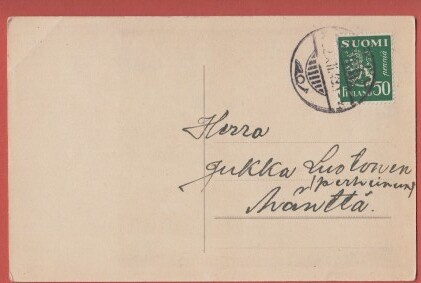 SUOMI
penniä
FINLAND 50
Herra
Jukka Luotonen
(perheineen)
Mänttä.